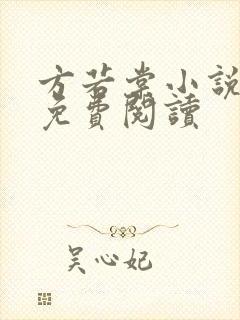 方若堂小說
免費閱讀
吴心妃